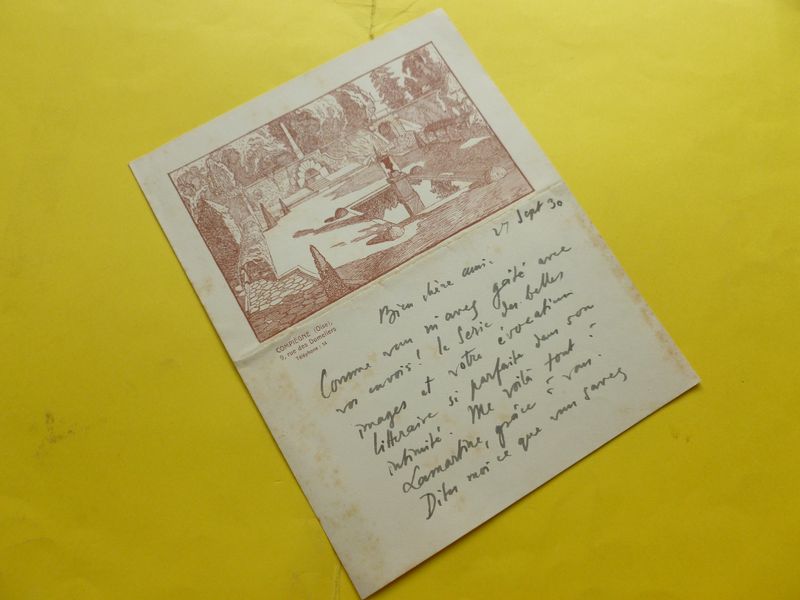 COMPIÈGNE (Oise),
9, rue des Domeliers
Téléphone : 14
27 Sept 30
Bien chère amie.
Comme vous m'avez gâté avec
vos envois ! la Série des belles
images et votre évocation
littéraire si parfaite dans son
intimité. Me voilà tout à
Lamartine, grâce à vous.
Dites moi ce que vous savez